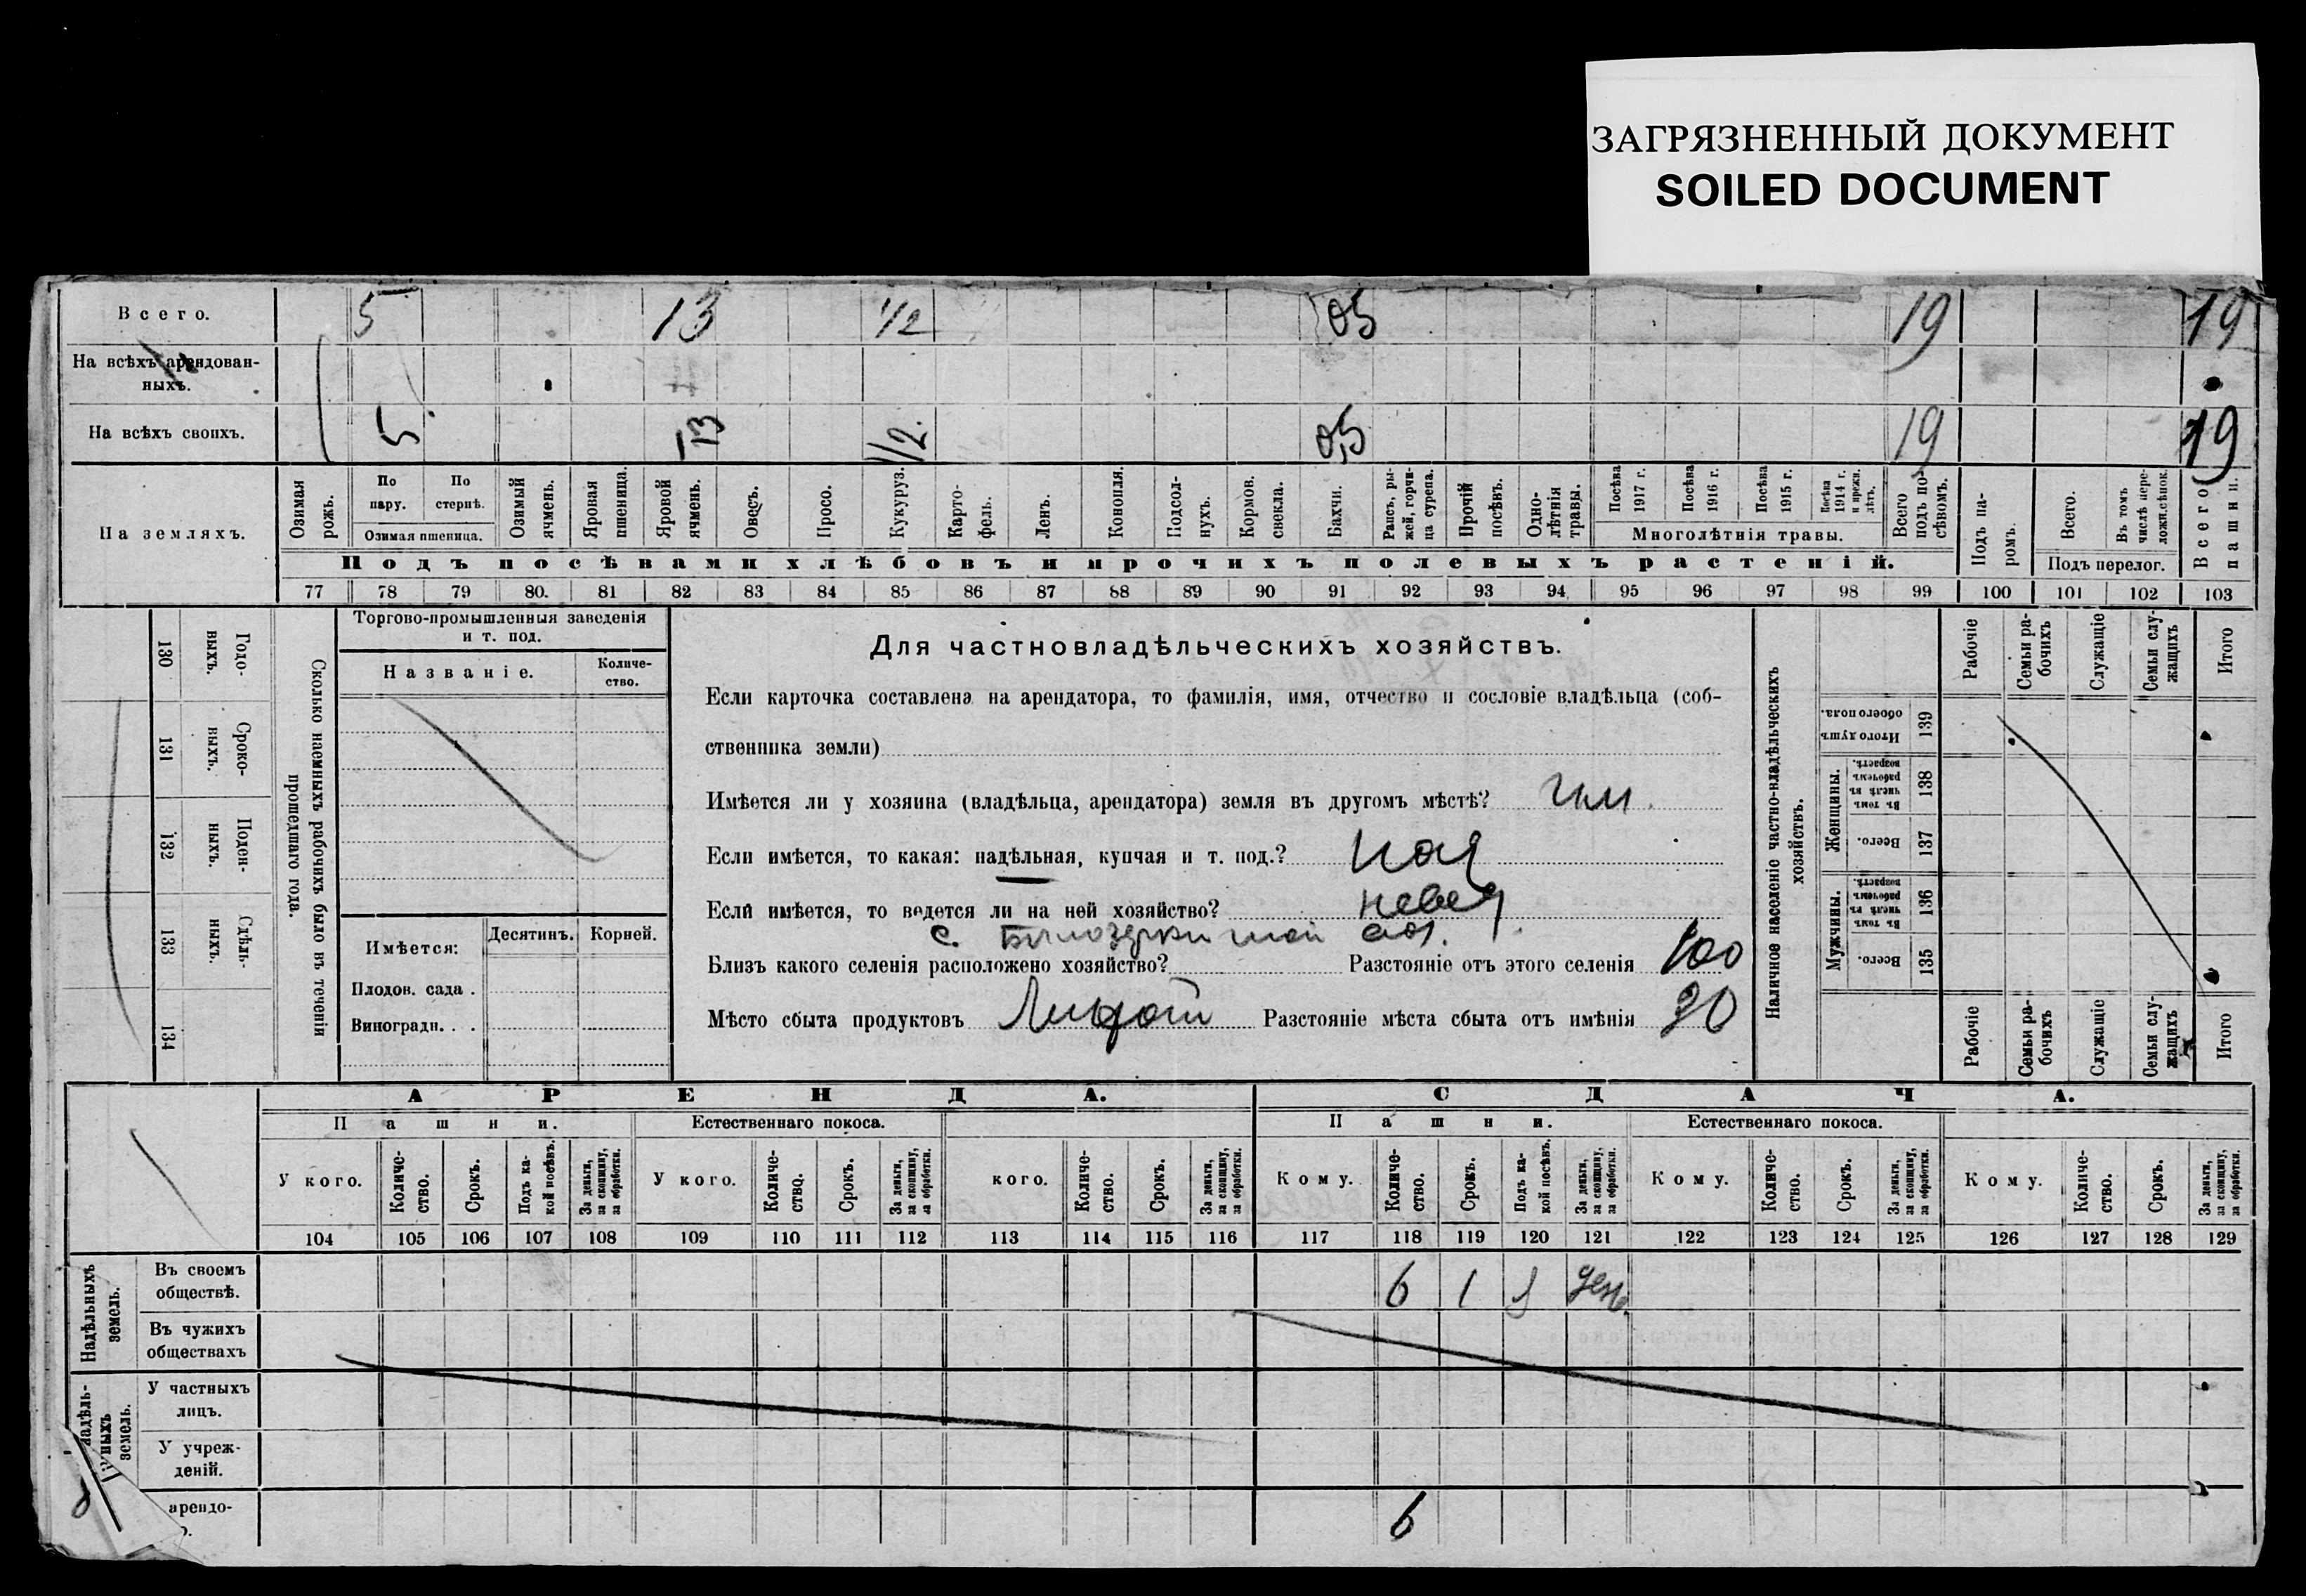 ЗАГРЯЗНЕННЫЙ ДОКУМЕНТ
SOILED DOCUMENT
Всего. 5 13 1/2 05 19 19
На всѣхъ арендован-
ныхъ.
На всѣхъ своихъ. 5 13 1/2 0,5 19 19
На земляхъ.
Озимая рожь.
По пару.
По стернѣ.
Озимая пшеница.
Озимый ячмень.
Яровая пшеница.
Яровой ячмень.
Овесъ.
Просо.
Кукуруз.
Карто-
фель.
Ленъ.
Конопля.
Подсол-
нухъ.
Кормов. свекла.
Бахчи.
Рапсъ, ры-
жей, горчи-
ца сурепа.
Прочій посѣвъ.
Одно-
лѣтнія травы.
Посѣва 1917 г.
Посѣва 1916 г.
Посѣва 1915 г.
Посѣва 1914 г. и прежн. лѣтъ.
Многолѣтнія травы.
Всего подъ по-
сѣвомъ.
Подъ посѣвами хлѣбовъ и прочихъ полевыхъ растеній.
Подъ па-
ромъ.
Всего.
Въ томъ числѣ пере-
ложн. сѣнок.
Подъ перелог.
Всего пашни.
77 78 79 80. 81 82 83 84 85 86 87 88 89 90 91 92 93 94 95 96 97 98 99 100 101 102 103
130 Годо-
выхъ.
131 Сроко-
ныхъ.
132 Поден-
ныхъ.
133 Сдѣль-
ныхъ.
134
Сколько наемныхъ рабочихъ было въ теченіи
прошедшаго года.
Торгово-промышленныя заведенія
и т. под.
Названіе.
Количе-
ство.
Имѣется: Десятинъ. Корней.
Плодов. сада .
Виноградн. . .
Для частновладѣльческихъ хозяйствъ.
Если карточка составлена на арендатора, то фамилія, имя, отчество и сословіе владѣльца (соб-
ственника земли)
Имѣется ли у хозяина (владѣльца, арендатора) земля въ другомъ мѣстѣ?
Если имѣется, то какая: надѣльная, купчая и т. под.? над
Если имѣется, то ведется ли на ней хозяйство? невед.
с.
Близъ какого селенія расположено хозяйство? Разстояніе отъ этого селенія 100
Мѣсто сбыта продуктовъ Разстояніе мѣста сбыта отъ имѣнія 20
Наличное населеніе частно-владѣльческихъ
хозяйствъ.
Рабочіе
Семьи ра-
бочихъ
Служащіе
Семьи слу-
жащихъ
Итого
Итого душъ обоего пола. 139
Женщины.
Въ томъ числѣ въ рабочемъ возрастѣ. 138
Всего. 137
Мужчины.
Въ томъ числѣ въ рабочемъ возрастѣ. 136
Всего. 135
Рабочіе
Семьи ра-
бочихъ
Служащіе
Семьи слу-
жащихъ
Итого
АРЕНДА. СДАЧА.
Пашни. Естественнаго покоса. Пашни. Естественнаго покоса.
У кого. Количе-
ство. Срокъ. Подъ ка-
кой посѣвъ. За деньги, за скопщину, за обработки.
У кого. Количе-
ство. Срокъ. За деньги, за скопщину, за обработки.
кого. Количе-
ство. Срокъ. За деньги, за скопщину, за обработки.
Кому. Количе-
ство. Срокъ. Подъ ка-
кой посѣвъ. За деньги, за скопщину, за обработки.
Кому. Количе-
ство. Срокъ. За деньги, за скопщину, за обработки.
Кому. Количе-
ство. Срокъ. За деньги, за скопщину, за обработки.
104 105 106 107 108 109 110 111 112 113 114 115 116 117 118 119 120 121 122 123 124 125 126 127 128 129
Надѣльныхъ земель.
Въ своемъ
обществѣ. 6 1 ден.
Въ чужихъ
обществахъ
надѣль-
ныхъ
земель.
У частныхъ
лицъ.
У учреж-
деній.
арендо-
6